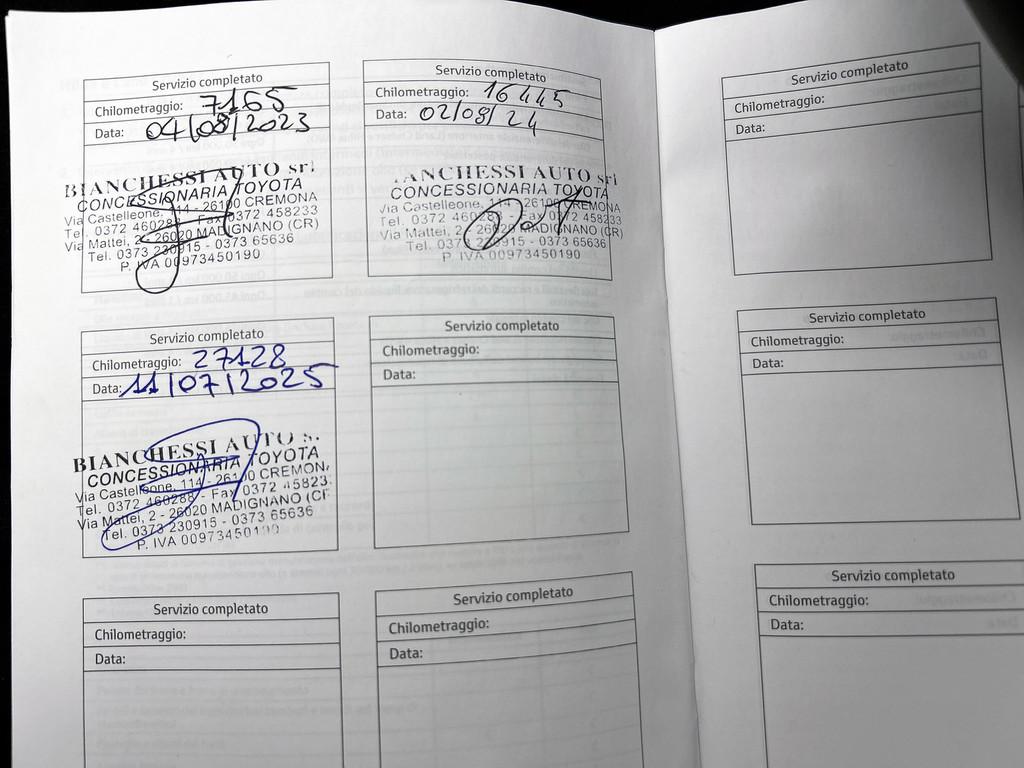 Servizio completato
Chilometraggio: 7165
Data: 04/08/2023
BIANCHESSI AUTO srl
CONCESSIONARIA TOYOTA
Via Castelleone, 114 - 26100 CREMONA
Tel. 0372 460288 - Fax 0372 458233
Via Mattei, 2 - 26020 MADIGNANO (CR)
Tel. 0373 230915 - 0373 65636
P. IVA 00973450190
Servizio completato
Chilometraggio: 16445
Data: 02/08/24
IANCHESSI AUTO srl
CONCESSIONARIA TOYOTA
Via Castelleone, 114 - 26100 CREMONA
Tel. 0372 460288 - Fax 0372 458233
Via Mattei, 2 - 26020 MADIGNANO (CR)
Tel. 0373 230915 - 0373 65636
P. IVA 00973450190
Servizio completato
Chilometraggio: 27128
Data: 11/07/2025
BIANCHESSI AUTO s
CONCESSIONARIA TOYOTA
Via Castelleone, 114 - 26100 CREMON
Tel. 0372 460288 - Fax 0372 45823
Via Mattei, 2 - 26020 MADIGNANO (CF
Tel. 0373 230915 - 0373 65636
P. IVA 00973450190
Servizio completato
Chilometraggio:
Data:
Servizio completato
Chilometraggio:
Data:
Servizio completato
Chilometraggio:
Data:
Servizio completato
Chilometraggio:
Data:
Servizio completato
Chilometraggio:
Data:
Servizio completato
Chilometraggio:
Data: